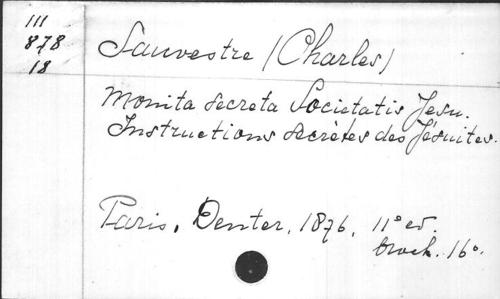 111
878
18
Sauvestre (Charles)
Monita secreta Societatis Jesu.
Instructions secrètes des Jésuites.
Paris, Denter, 1876, 11° ed.
broch. 16°.